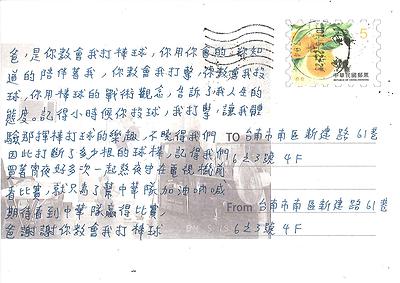 爸,是你教會我打棒球,你用你會的,你知
道的陪伴著我,你教會我打擊,你教會我投
球,你用棒球的戰術觀念,告訴了我人生的
態度。記得小時候你投球,我打擊,讓我體
驗那揮棒打球的樂趣,不曉得我們
因此打斷了多少根的球棒,記得我們
冒著宵夜好多次一起熬夜守在電視機前
看比賽,就只為了幫中華隊加油吶喊
期待看到中華隊贏得比賽,
爸謝謝你教會我打棒球
5
中華民國郵票
TO 台南市南區新建路 61巷
6之3號 4F
From 台南市南區新建路 61巷
6之3號 4F